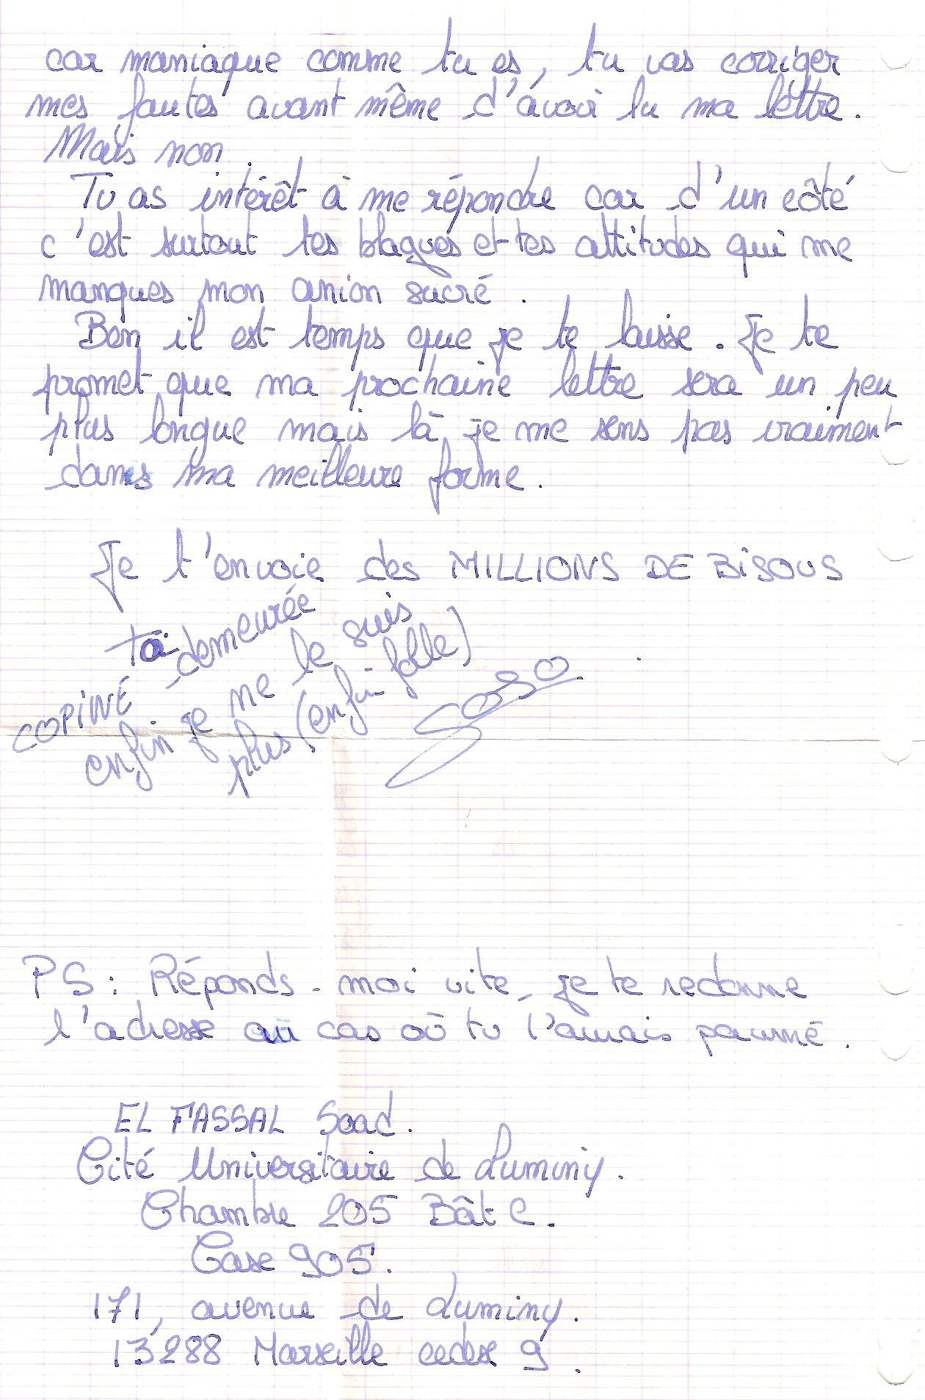 car maniaque comme tu es, tu vas corriger
mes fautes avant même d'avoir lu ma lettre.
Mais non.
Tu as intérêt à me répondre car d'un côté
c'est surtout tes blagues et tes attitudes qui me
manques mon anion sucré.
Bon il est temps que je te laisse. Je te
promet que ma prochaine lettre sera un peu
plus longue mais là je me sens pas vraiment
dans ma meilleure forme.
Je t'envoie des MILLIONS DE BiSOUS
ta demeurée
COPINE enfin je ne le suis
plus (enfin folle)
Soso
PS: Réponds-moi vite, je te redonne
l'adresse au cas où tu l'aurais paumé.
EL FASSAL Soad.
Cité Universitaire de Luminy.
Chambre 205 Bât C.
Case 905.
171, avenue de Luminy.
13288 Marseille cedex 9.